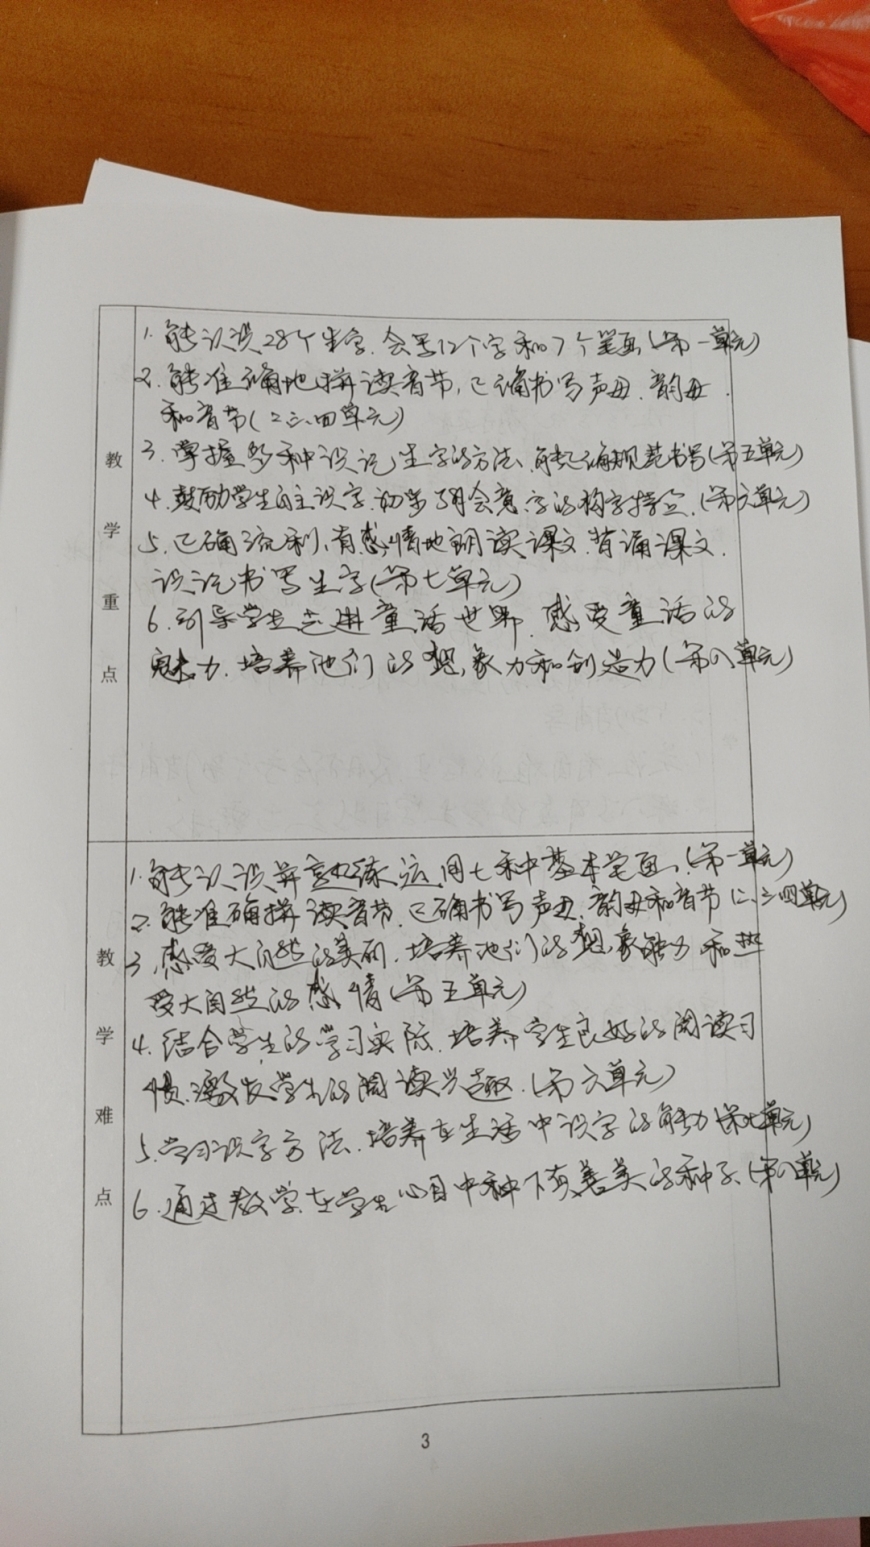 教学重点
1. 能认识28个生字.会写12个字和7个笔画(第一单元)
2. 能准确地拼读音节,正确书写声母.韵母.
和音节(二三.四单元)
3. 掌握多种识记生字的方法、能正确规范书写(第五单元)
4. 鼓励学生自主识字.初步了解会意字的构字特点.(第六单元)
5. 正确流利、有感情地朗读课文.背诵课文.
识记书写生字(第七单元)
6. 引导学生走进童话世界.感受童话的
魅力.培养他们的想象力和创造力(第八单元)
教学难点
1. 能认识并熟练运用七种基本笔画.(第一单元)
2. 能准确拼读音节.正确书写声母.韵母和音节(二.三四单元)
3. 感受大自然的美丽.培养他们的想象能力和热
爱大自然的感情(第五单元)
4. 结合学生的学习实际.培养学生良好的阅读习
惯.激发学生的阅读兴趣.(第六单元)
5. 学习识字方法.培养在生活中识字的能力(第七单元)
6. 通过教学.在学生心目中种下真善美的种子、(第八单元)
3